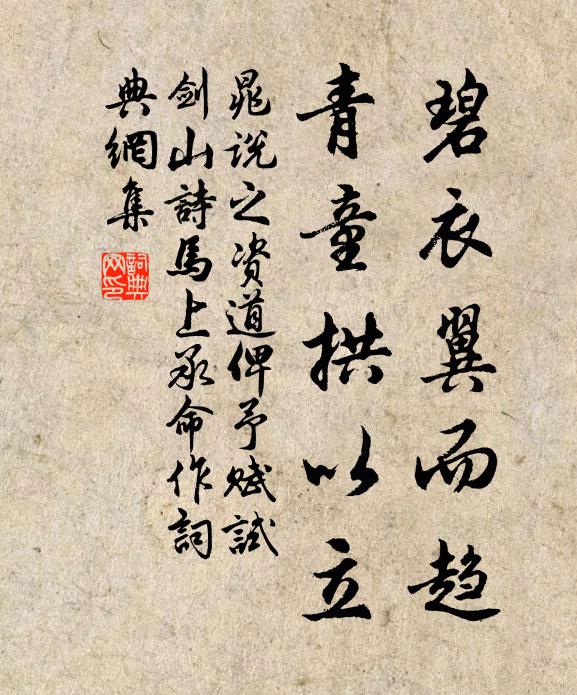 碧衣翼而趋
青童拱以立
晁说之资道俾予赋試
劍山詩馬上承命作詞
典網集
詞典網印